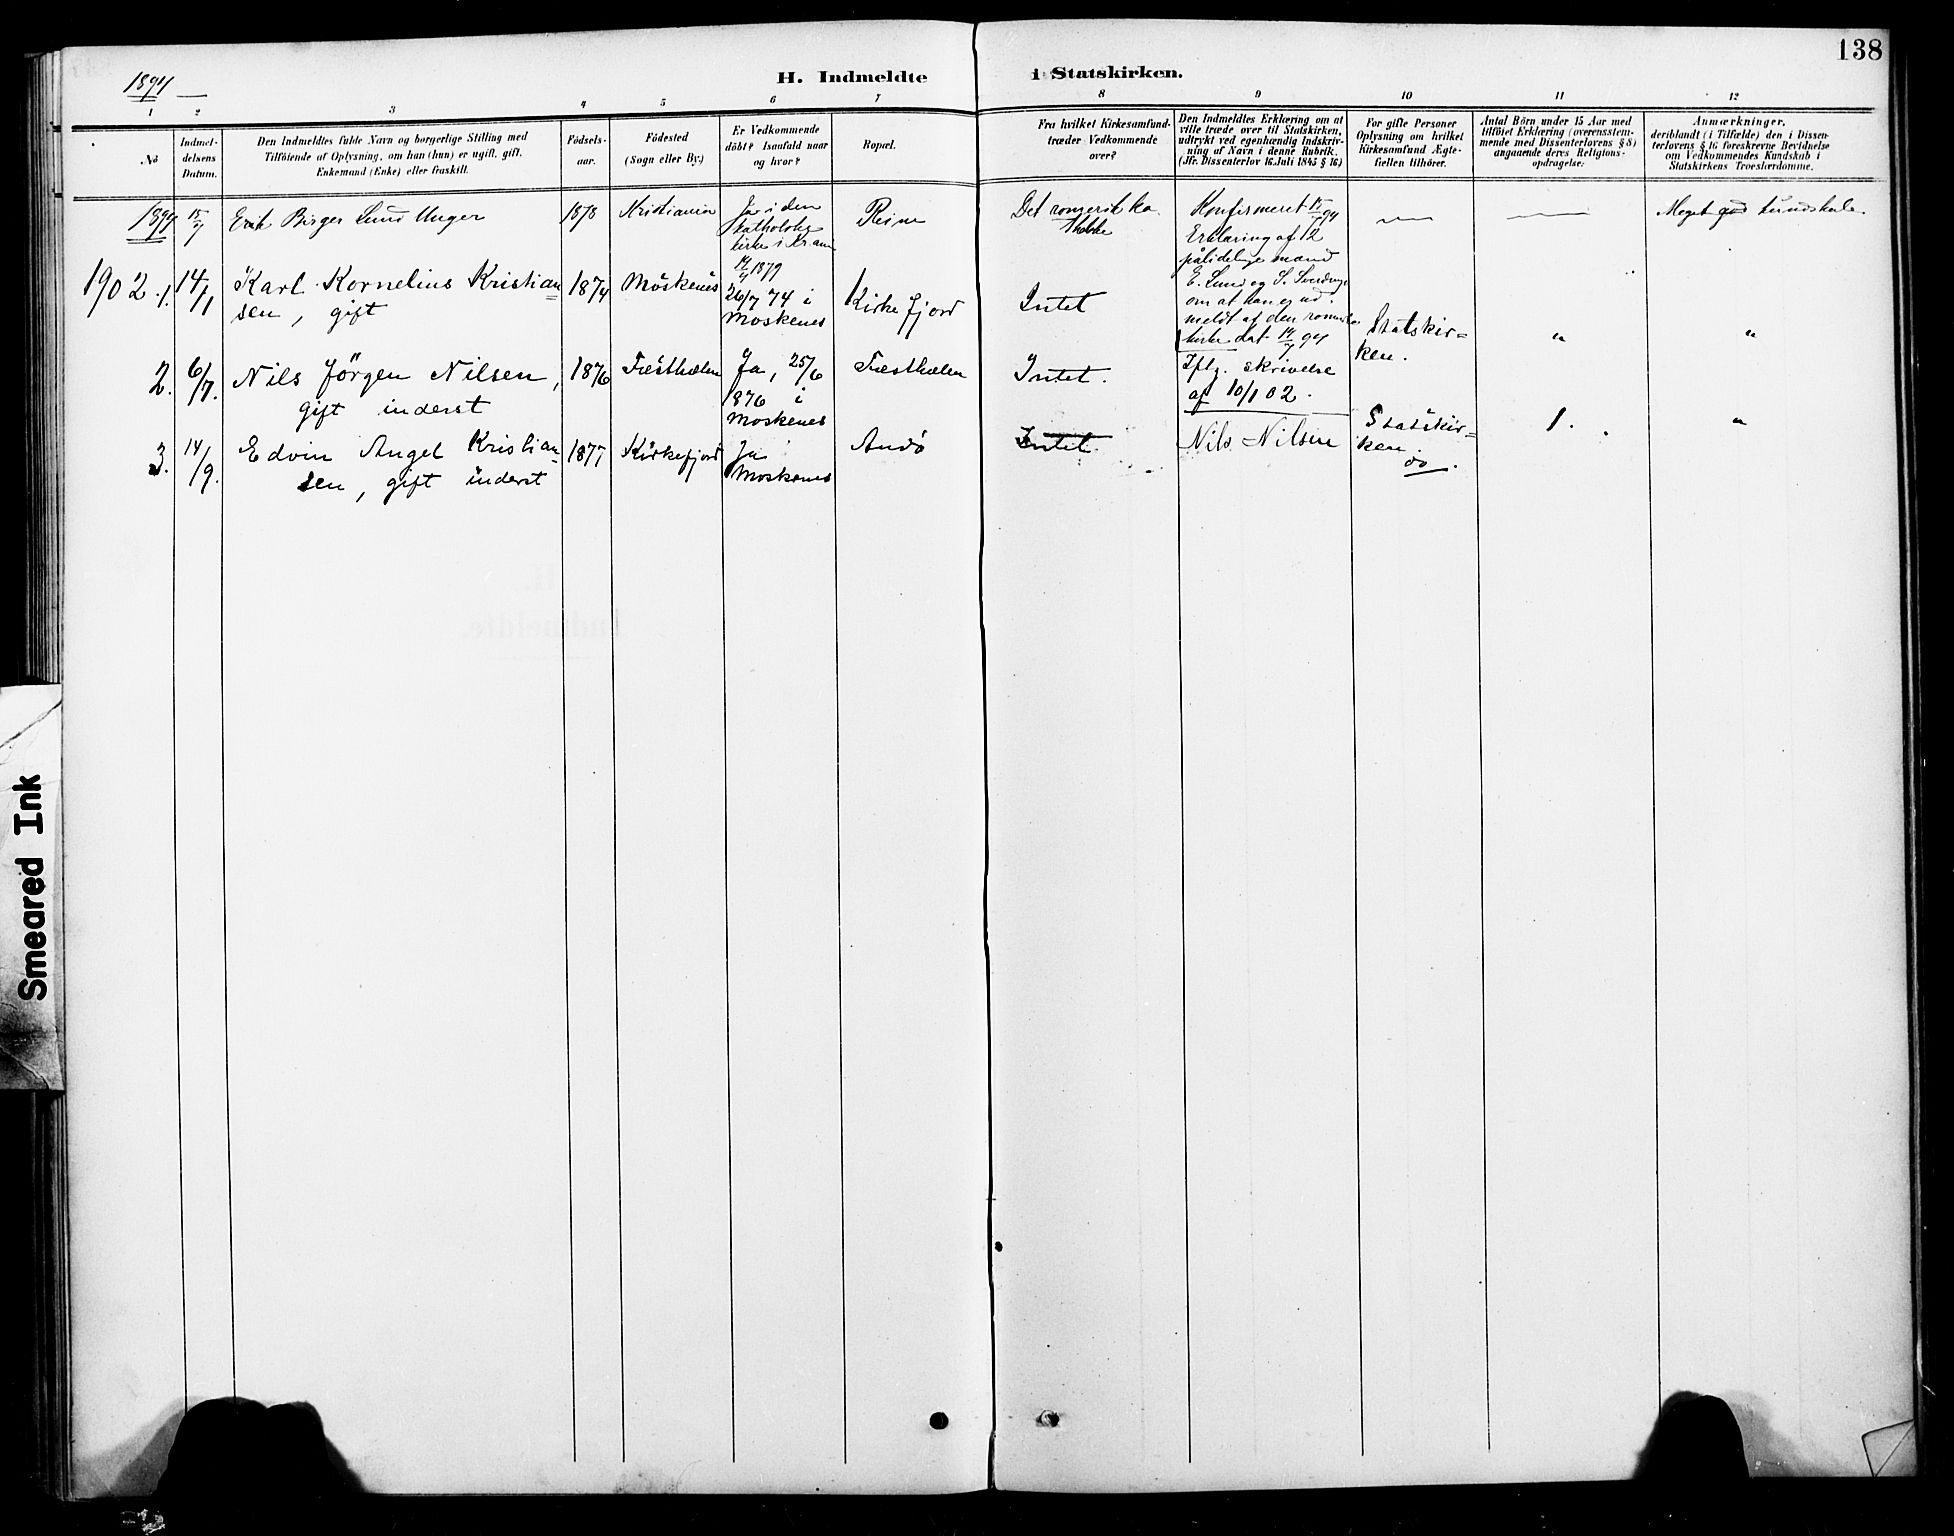 138
1894
H. Indmeldte i Statskirken.
1 2 3 4 5 6 7 8 9 10 11 12
No
Indmel-
delsens
Datum.
Den Indmeldtes fulde Navn og borgerlige Stilling med
Tilföiende af Oplysning, om han (hun) er ugift, gift,
Enkemand (Enke) eller fraskilt.
Födsels-
aar.
Födested
(Sogn eller By.)
Er Vedkommende
döbt? Isaafald naar
og hvor?
Bopæl.
Fra hvilket Kirkesamfund-
træder Vedkommende
over?
Den Indmeldtes Erklæring om at
ville træde over til Statskirken,
udtrykt ved egenhændig Indskriv-
ning af Navn i denne Rubrik.
(Jfr. Dissenterlov 16. Juli 1845 § 16)
For gifte Personer
Oplysning om hvilket
Kirkesamfund Ægte-
fællen tilhörer.
Antal Börn under 15 Aar med
tilföiet Erklæring (overensstem-
mende med Dissenterlovens § 8)
angaaende deres Religions-
opdragelse:
Anmærkninger,
deriblandt (i Tilfælde) den i Dissen-
terlovens § 16 foreskrevne Bevidnelse
om Vedkommendes Kundskab i
Statskirkens Troeslærdomme.
15/7
Erik Birger Lund Unger
1878
Kristiania
Ja i den
katholske
kirke i Kr.ania
14/4 1879
Reine
Det romersk ka
tholske
Konfirmeret 15/7 94
Erklæring af 12
pålidelige mænd
E. Lund og S. Sverdrup
om at han er ud-
meldt af den romerske
kirke dat 14/7 94
Meget god kundskab.
1902. 1.
14/1
Karl Kornelius Kristian=
sen, gift
1874
Moskenes
26/7 74 i
Moskenes
Kirkefjord
Intet
Iflg. skrivelse
af 10/1 02.
Statskir=
ken.
"
"
2.
6/7.
Nils Jörgen Nilsen,
gift inderst
1876
Fæsthælen
Ja, 25/6
1876 i
Moskenes
Fæsthælen
Intet.
Nils Nilsen
Statskir=
ken.
1.
"
3.
14/9.
Edvin Angel Kristian=
sen, gift inderst
1877
Kirkefjord
Ja
Moskenes
Andö
Intet
do.
Smeared Ink